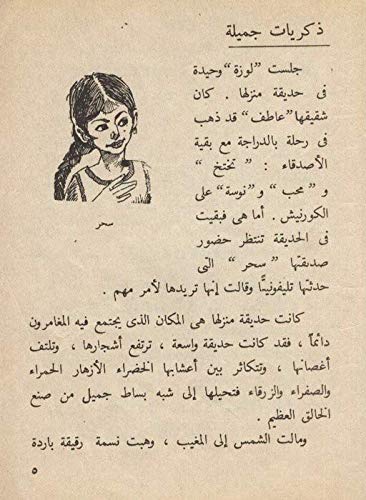 ذكريات جميلة
جلست "لوزة" وحيدة
فى حديقة منزلها . كان
شقيقها "عاطف" قد ذهب
فى رحلة بالدراجة مع بقية
الأصدقاء : " تختخ "
و " محب " و "نوسة" على
الكورنيش . أما هى فبقيت
فى الحديقة تنتظر حضور
صديقتها " سحر " التى
سحر
حدثتها تليفونيًّا وقالت إنها تريدها لأمر مهم .
كانت حديقة منزلها هى المكان الذى يجتمع فيه المغامرون
دائماً ، فقد كانت حديقة واسعة ، ترتفع أشجارها ، وتلتف
أغصانها ، وتتكاثر بين أعشابها الخضراء الأزهار الحمراء
والصفراء والزرقاء فتحيلها إلى شبه بساط جميل من صنع
الخالق العظيم .
ومالت الشمس إلى المغيب ، وهبت نسمة رقيقة باردة
٥